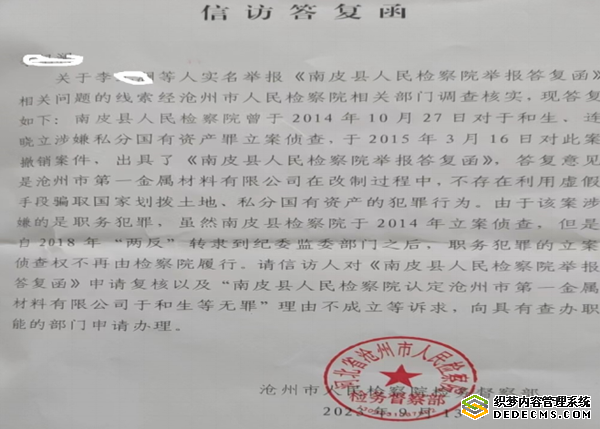 信访答复函
关于李 等人实名举报《南皮县人民检察院举报答复函》
相关问题的线索经沧州市人民检察院相关部门调查核实,现答复
如下:南皮县人民检察院曾于2014年10月27日对于和生、连
晓立涉嫌私分国有资产罪立案侦查,于2015年3月16日对此案
撤销案件,出具了《南皮县人民检察院举报答复函》,答复意见
是沧州市第一金属材料有限公司在改制过程中,不存在利用虚假
手段骗取国家划拨土地、私分国有资产的犯罪行为。由于该案涉
嫌的是职务犯罪,虽然南皮县检察院于2014年立案侦查,但是
自2018年"两反"转隶到纪委监委部门之后,职务犯罪的立案
侦查权不再由检察院履行。请信访人对《南皮县人民检察院举报
答复函》申请复核以及"南皮县人民检察院认定沧州市第一金属
材料有限公司于和生等无罪"理由不成立等诉求,向具有查办职
能的部门申请办理。
河北省沧州市人民检察院
检务督察部
沧州市人民检察院检务督察部
年9月13
织梦内容管理系统
DEDECMS.COM